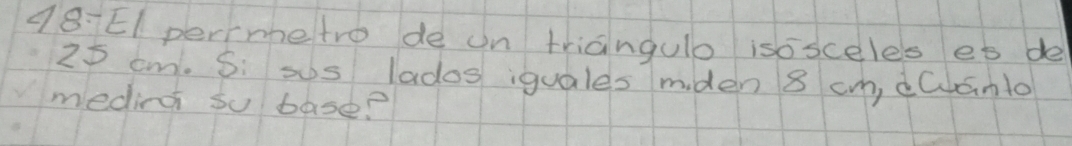 48-El perímetro de un triángulo isósceles es de
25 cm. Si sus lados iguales miden 8 cm, ¿Cuánto
medirá su base?